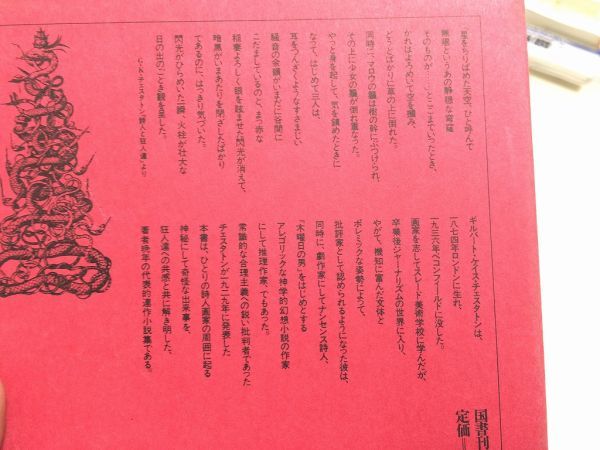 「星をちりばめた天空、ひと呼んで
無限というあの静穏な穹窿
そのものが……」とここまでいったとき、
かれはよろめいて空を摑み、
どうとばかりに墓の上に倒れた。
同時に、マロウの軀は樹の幹にぶつけられ、
その上に少女の軀が倒れ重なった。
やっと身を起して、気を鎮めたときに
なって、はじめて三人は、
耳をつんざくようなすさまじい
騒音の余韻がいまだに谷間に
こだましているのと、まっ赤な
稲妻よろしく眼を眩ませた閃光が消えて、
暗黒がいまあたりを閉ざしたばかり
であるのに、はっきり気づいた。
閃光がひらめいた一瞬、火柱が壮大な
日の出のごとき観を呈した。
G・K・チェスタトン「詩人と狂人達」より
ギルバート・ケイス・チェスタトンは、
一八七四年ロンドンに生れ、
一九三六年ベコンフィールドに没した。
画家を志してスレード美術学校に学んだが、
卒業後ジャーナリズムの世界に入り、
やがて、機知に富んだ文体と
ポレミックな姿勢によって、
批評家として認められるようになった彼は、
同時に、劇作家にしてナンセンス詩人、
『木曜日の男』をはじめとする
アレゴリックな神学的幻想小説の作家
にして推理作家、でもあった。
常識的な合理主義への鋭い批判者であった
チェスタトンが一九二九年に発表した
本書は、ひとりの詩人画家の周囲に起る
神秘にして奇怪な出来事を、
狂人達への共感と共に解き明した、
著者晩年の代表的連作小説集である。
国書刊
定価=